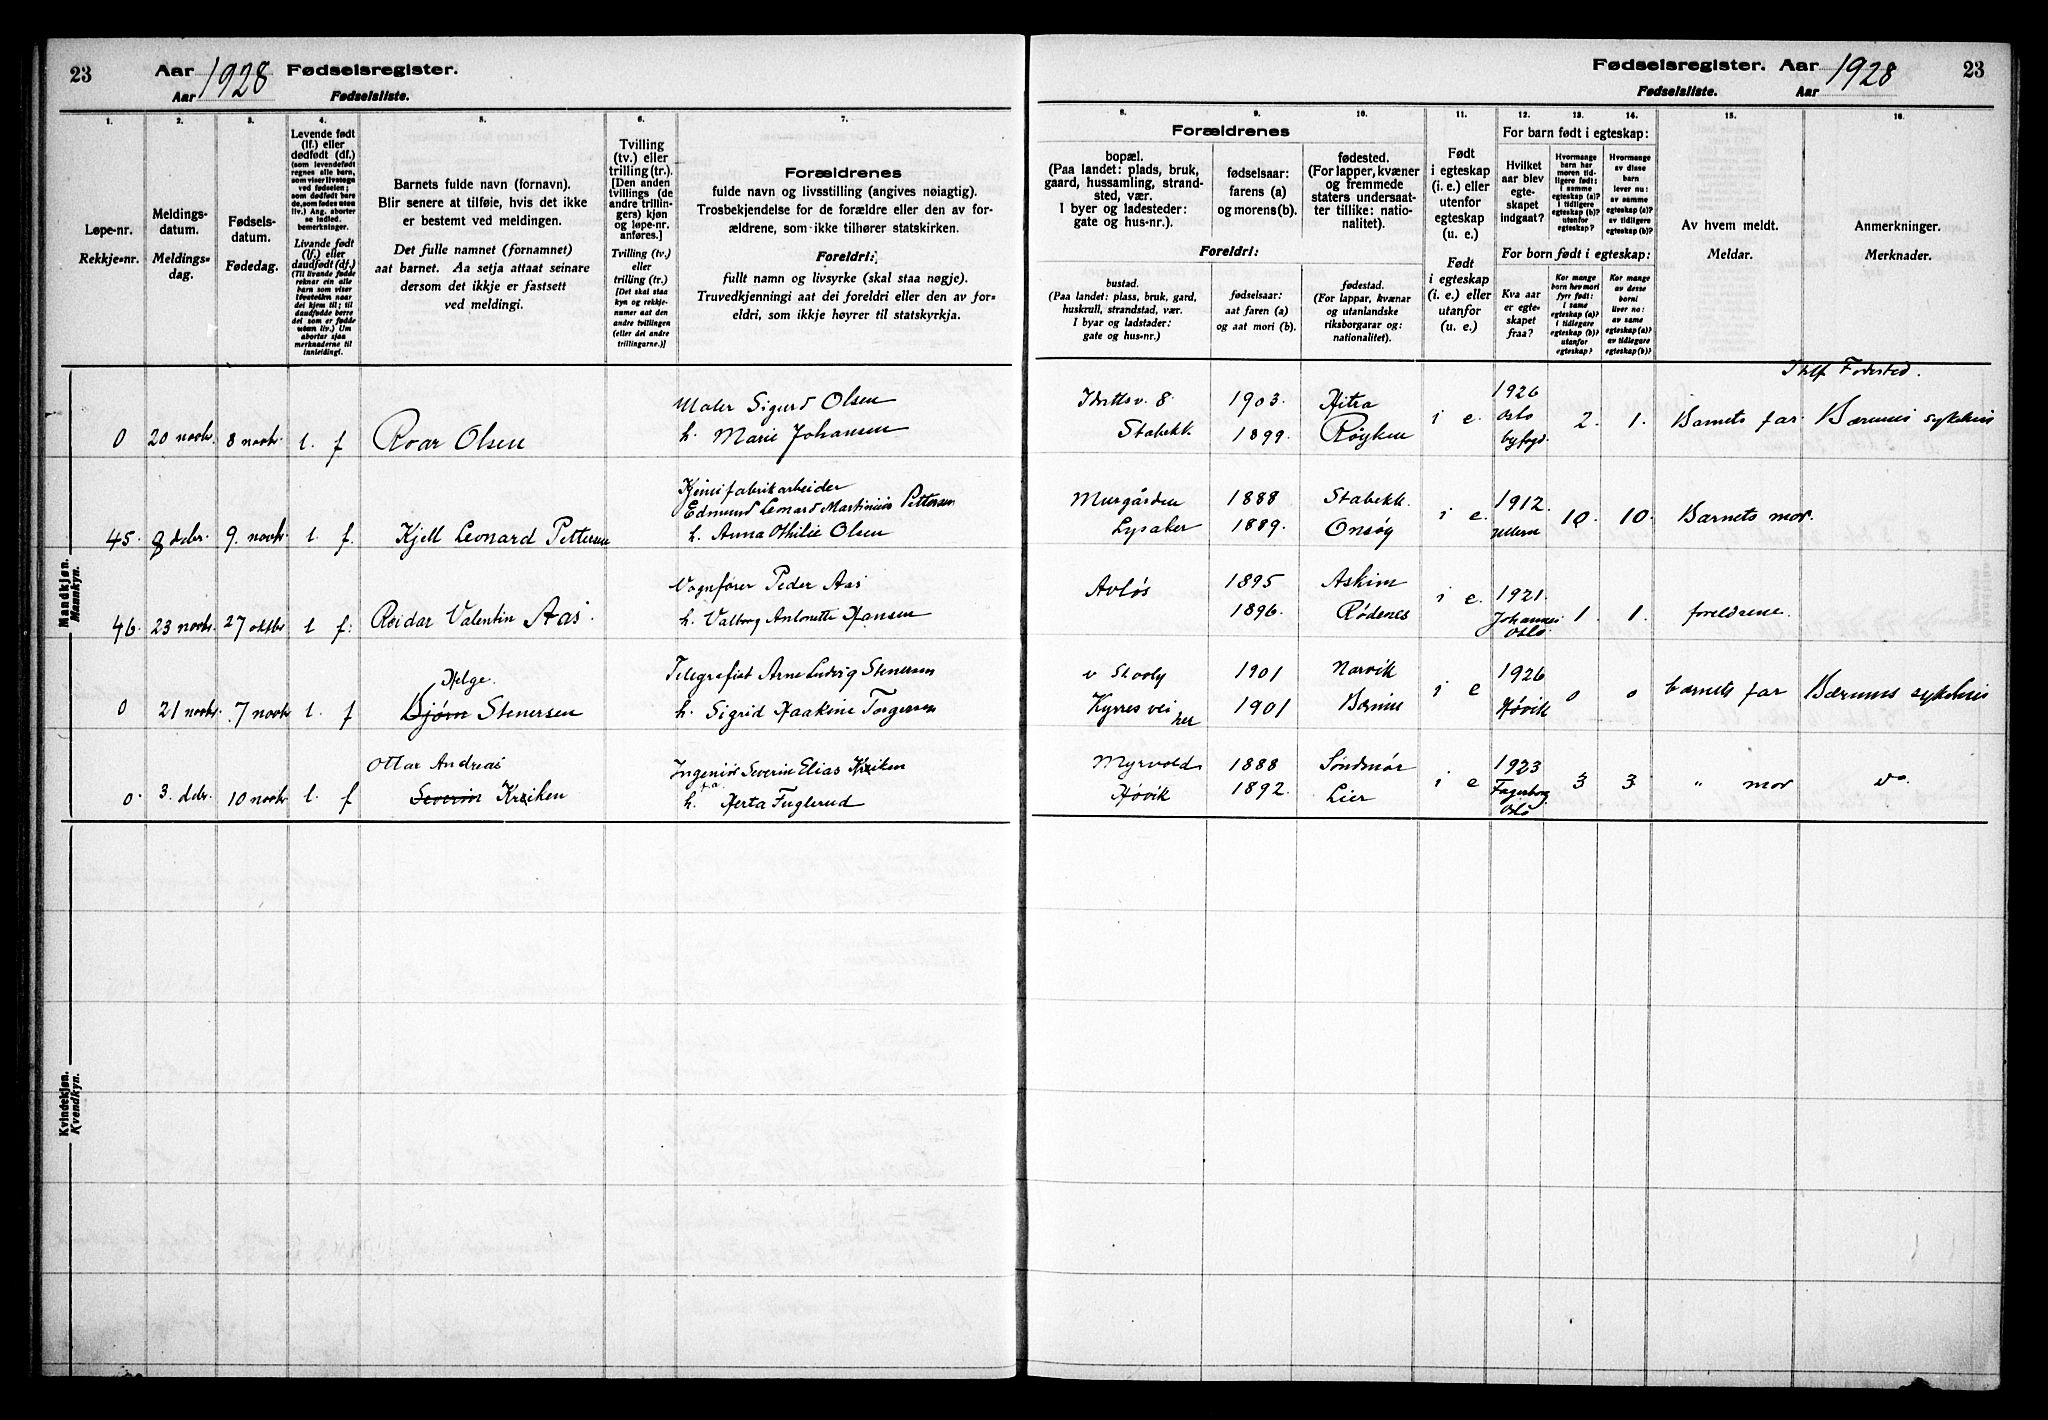 23 Aar 1928 Fødselsregister.
Aar Fødselsliste.
Fødselsregister. Aar 1928 23
Fødselsliste. Aar
1. 2. 3. 4. 5. 6. 7.
Løpe-nr.
Rekkje-nr.
Meldings-
datum.
Meldings-
dag.
Fødsels-
datum.
Fødedag.
Levende født
(lf.) eller
dødfødt (df.)
(som levendefødt
regnes alle barn,
som viser livstegn
ved fødselen;
som dødfødt bare
de, som fødes uten
liv.) Ang. aborter
se indled.
bemerkninger.
Livande født
(lf.) eller
daudfødt (df.)
(Til livande fødde
reknar ein alle
barn som viser
livsteikn naar
dei kjem til; til
daudfødde berre
dei som er fødde
utan liv.) Um
abortar sjaa
merknaderne til
innleiding.
Barnets fulde navn (fornavn).
Blir senere at tilføie, hvis det ikke
er bestemt ved meldingen.
Det fulle namnet (fornamnet)
aat barnet. Aa setja attaat seinare
dersom det ikkje er fastsett
ved meldingi.
Tvilling
(tv.) eller
trilling (tr.).
[Den anden
tvillings (de
andre trillin-
gers) kjøn
og løpe-nr.
anføres.]
Tvilling (tv.)
eller
trilling (tr.)
[Det skal staa
kyn og rekkje-
numer aat den
andre tvillingen
(eller dei andre
trillingarne.)]
Forældrenes
fulde navn og livsstilling (angives nøiagtig).
Trosbekjendelse for de forældre eller den av for-
ældrene, som ikke tilhører statskirken.
Foreldri:
fullt namn og livsyrke (skal staa nøgje).
Truvedkjenningi aat dei foreldri eller den av for-
eldri, som ikkje høyrer til statskyrkja.
8. 9. 10. 11. 12. 13. 14. 15. 16.
Forældrenes
bopæl.
(Paa landet: plads, bruk,
gaard, hussamling, strand-
sted, vær.
I byer og ladesteder:
gate og hus-nr.).
fødselsaar:
farens (a)
og morens (b).
fødested.
(For lapper, kvæner
og fremmede
staters undersaat-
ter tillike: natio-
nalitet).
Foreldri:
bustad.
(Paa landet: plass, bruk, gard,
huskrull, strandstad, vær.
I byar og ladstader:
gate og hus-nr.)
fødselsaar:
aat faren (a)
og aat mori (b).
fødestad.
(For lappar, kvænar
og utanlandske
riksborgarar og:
nationalitet).
Født
i egteskap
(i. e.) eller
utenfor
egteskap
(u. e.)
Født
i egteskap
(i. e.) eller
utanfor
(u. e.)
For barn født i egteskap:
Hvilket
aar blev
egte-
skapet
indgaat?
Hvormange
barn har
moren tid-
ligere født:
i samme
egteskap (a)?
i tidligere
egteskap (b)?
utenfor
egteskap?
Hvormange
av disse
barn
lever nu:
av samme
egteskap (a)?
av tidligere
egteskap (b)?
For barn født i egteskap:
Kva aar
er egte-
skapet
fraa?
Kor mange
barn hev mori
fyrr født:
i same
egteskap (a)?
i tidlegare
egteskap (b)?
utanfor
egteskap?
Kor mange
av desse
borni
liver no:
av same
egteskap (a)?
av tidlegare
egteskap (b)?
Av hvem meldt.
Meldar.
Anmerkninger.
Merknader.
Mandkjøn.
Mannkyn.
Fødested.
Maler Sigurd Olsen 8 1903. Hitra 1926
0 20 novbr. 8 novbr. l. f Roar Olsen h. Marie Johansen Stabekk 1899. Røyken i e. Oslo byfogd. 2. 1. Barnets far Bærums sykehus
Kjemisfabrikarbeider
Edmund Leonard Martinius Pettersen Murgården 1888 Stabekk. 1912.
45. 8 debr. 9. novbr. l. f. Kjell Leonard Pettersen h. Anna Othilie Olsen Lysaker 1889. Onsøy i e. Ullern 10. 10. Barnets mor.
Vognfører Peder Aas Avløs 1895 Askim 1921.
46. 23 novbr. 27 oktbr l f. Reidar Valentin Aas. h. Valborg Antonette Hansen 1896. Rødenes i e. Johannes Oslo 1. 1. foreldrene.
Helge. Telegrafist Arne Ludvig Stenersen v Staaly 1901 Narvik 1926
0 21 novbr. 7 novbr l. f Bjørn Stenersen h. Sigrid Haakine Torgersen Kyrres vei her 1901 Bærum i e Høvik 0 0 barnets far Bærums sykehus
Ottar Andreas Ingeniør Severin Elias Kræken Myrvold 1888 Søndmør 1923
0. 3. debr. 10 novbr l. f Severin Kræken h. Herta Fuglerud Høvik 1892. Lier i e Fagerborg Oslo 3 3 " mor do
Kvindekjøn.
Kvendkyn.